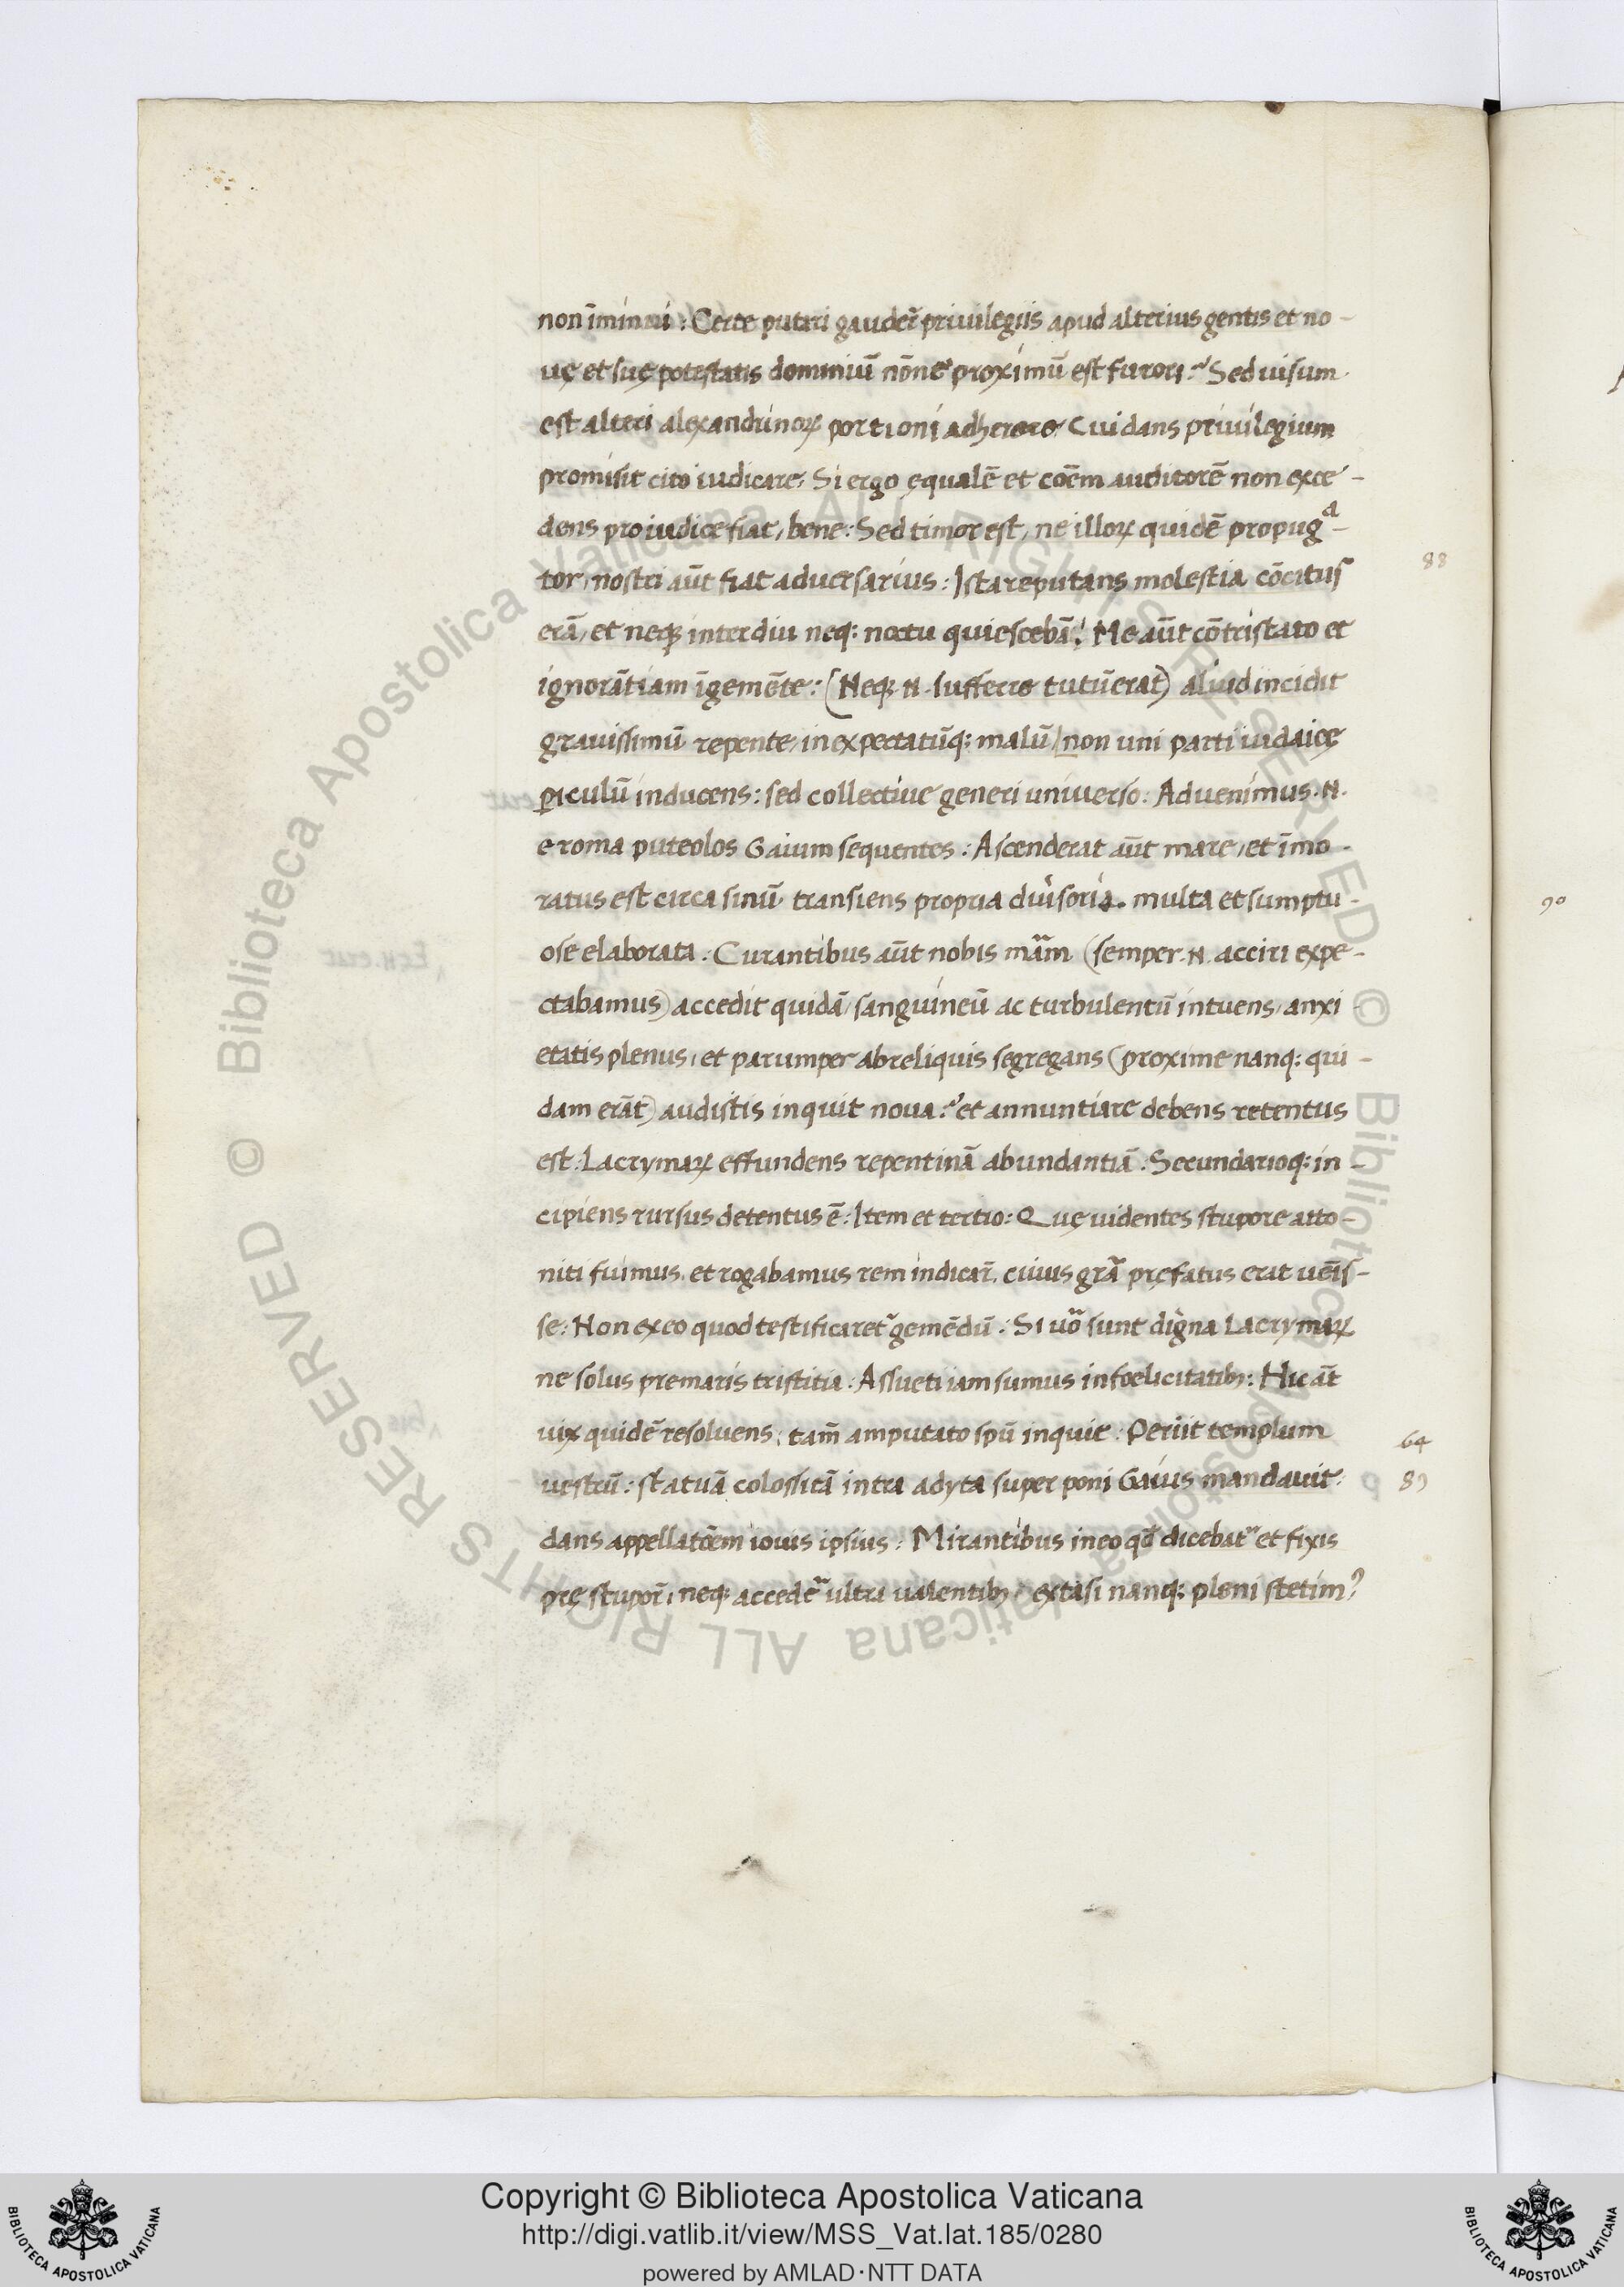 non īminui : Certe putari gaudeř priuilegiis apud alterius gentis et no-
uę et suę potestatis dominiū nōne proximū est furori ? Sed uisum
est alteri alexandrinoꝝ portioni adherere Cui dans priuilegium
promisit cito iudicare, Si ergo ęqualē et cōem auditorē non exce-
dens pro iudice fiat, bene : Sed timor est, ne illoꝝ quidē propugᵃ-
tor, nostri aūt fiat aduersarius : Ista reputans molestia cōcitus
erā, et neqꝫ interdiu neqꝫ noctu quiescebā : Me aūt cōtristato et
ignorātiam īgemēte : (Neqꝫ .N. sufferre tutū erat) aliud incidit
grauissimū repente, inexpectatūqꝫ malū, non uni parti iudaicę
ꝑiculū inducens : sed collectiue generi uniuerso : Aduenimus .N.
e roma puteolos Gaium sequentes : Ascenderat aūt mare, et īmo-
ratus est circa sinū transiens propria diuisoria multa et sumptu-
ose elaborata : Curantibus aūt nobis mām (semper .N. acciri expe-
ctabamus) accedit quidā, sanguineū ac turbulentū intuens, anxi
etatis plenus, et parumper ab reliquis segregans (proxime nanqꝫ qui-
dam erāt) audistis inquit noua ? et annuntiare debens retentus
est : Lacrymaꝝ effundens repentinā abundantiā : Secundarioqꝫ in-
cipiens rursus detentus ē : Item et tertio : Quę uidentes stupore atto-
niti fuimus, et rogabamus rem indicař, cuius grā pręfatus erat uēis-
se : Non ex eo quod testificaret᷑ gemēdū : Si uō sunt digna Lacrymaꝝ
ne solus premaris tristitia : Assueti iam sumus infoelicitatibꝫ : Hic āt
uix quidē resoluens, tam̄ amputato spū inquit : Periit templum
uestrū : statuā colossicā intra adyta super poni Gaius mandauit :
dans appellatōem iouis ipsius : Mirantibus in eo qđ dicebat᷑ et fixis
prę stupoř, neqꝫ accedē ultra ualentibꝫ, extasi nanqꝫ pleni stetim᷒
88
64
89
90
Copyright © Biblioteca Apostolica Vaticana
http://digi.vatlib.it/view/MSS_Vat.lat.185/0280
powered by AMLAD·NTT DATA
BIBLIOTECA APOSTOLICA VATICANA
BIBLIOTECA APOSTOLICA VATICANA
© Biblioteca Apostolica Vaticana ALL RIGHTS RESERVED © Biblioteca Apostolica Vaticana ALL RIGHTS RESERVED